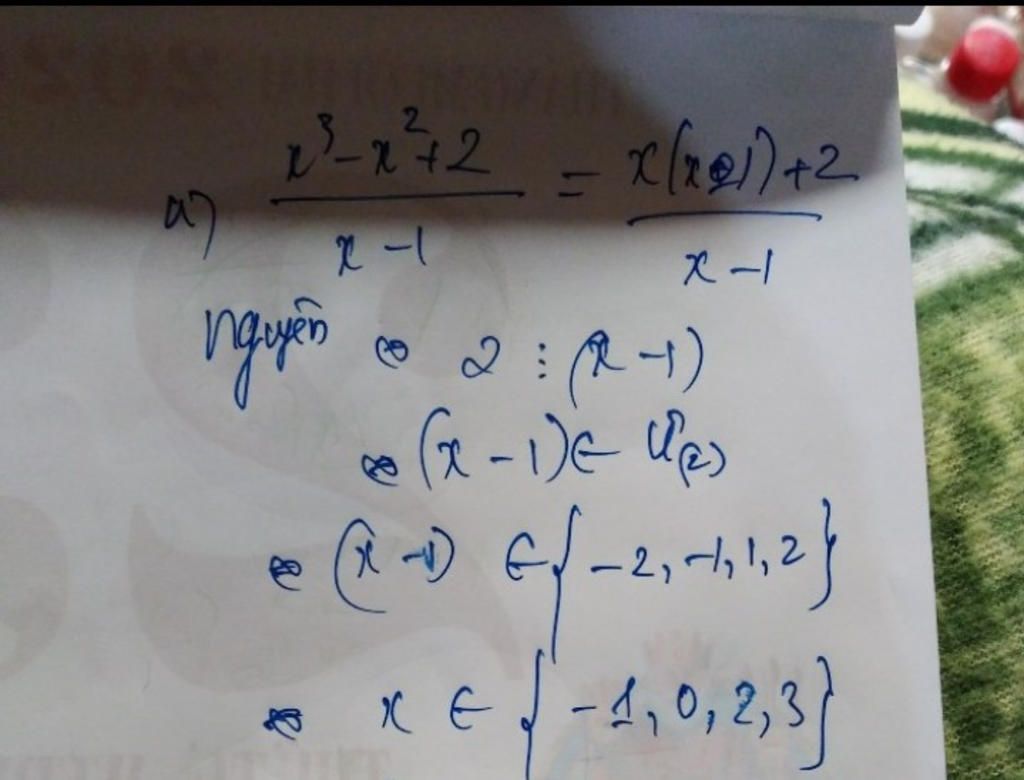 a) x³ - x² + 2 / x - 1 = x(x-1) + 2 / x - 1
nguyên ⇔ 2 ⋮ (x - 1)
⇔ (x - 1) ∈ Ư(2)
⇔ (x - 1) ∈ { -2, -1, 1, 2 }
⇔ x ∈ { -1, 0, 2, 3 }